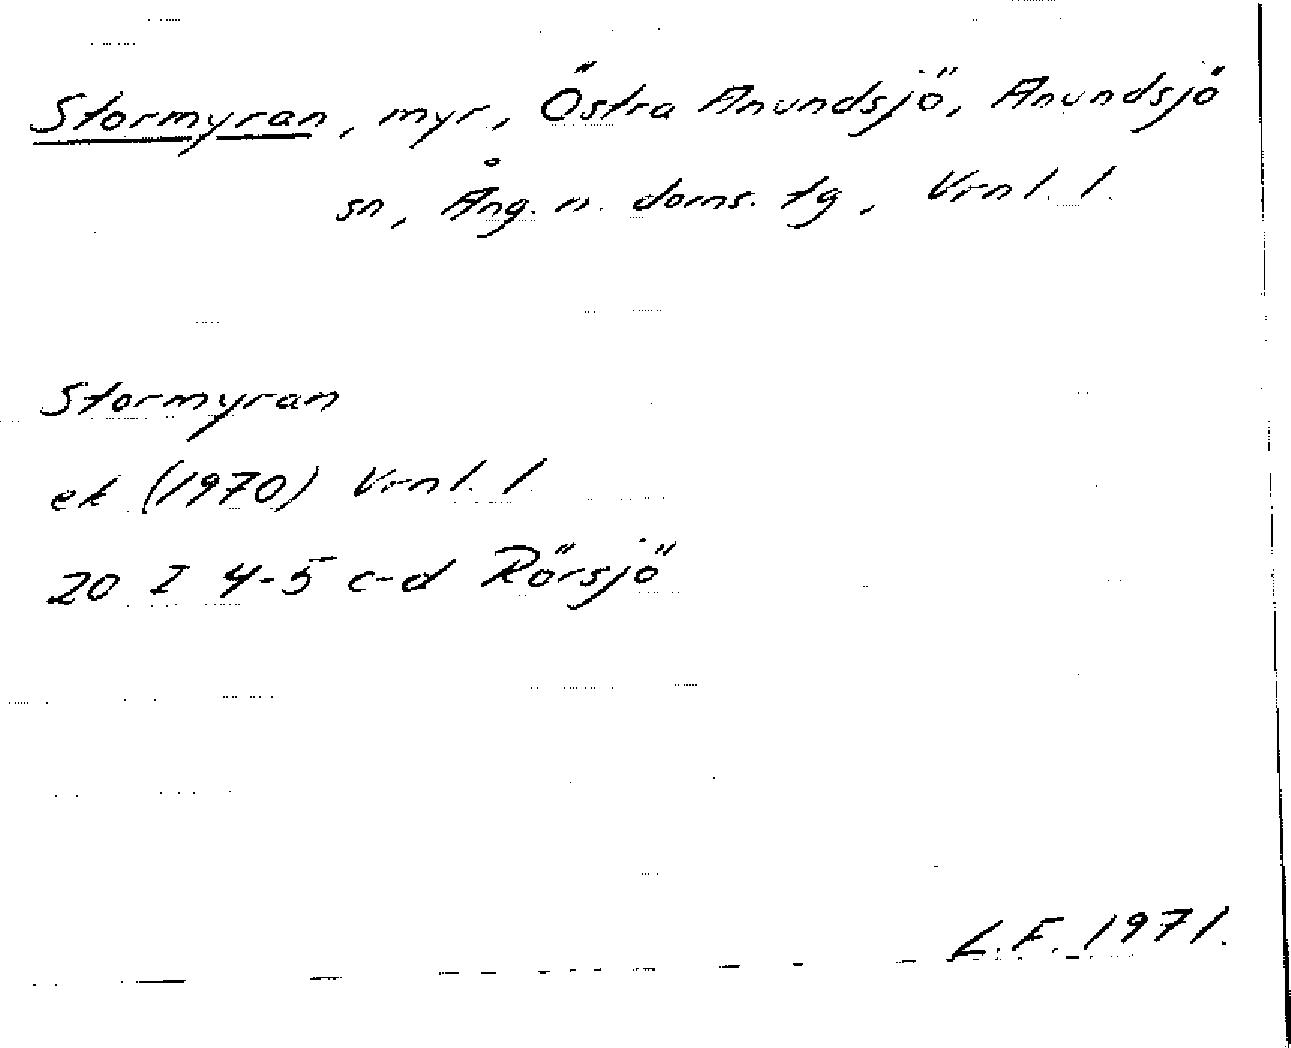 Stormyran, myr, Östra Anundsjö, Anundsjö
sn, Ång. n. doms. tg, Vrnl. l.
Stormyran
ek (1970) Vrnl. l
20 I 4-5 c-d Rörsjö
L.F. 1971.